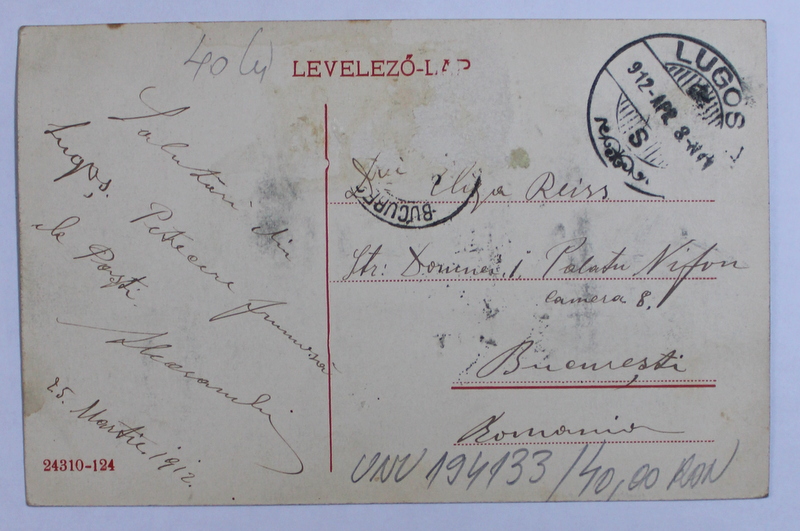 40 lei
LEVELEZŐ-LAP
LUGOS
912-APR. 8-
S
Salutări din
Lugoj. Petrecere frumoasă
de Paști.
25. Martie 1912.
24310-124
BUCUREȘ
Eliza Reiss
Str: Domnei, 1, Palatu Nifon
Camera 8.
București
Romania
194133/40,00 RON